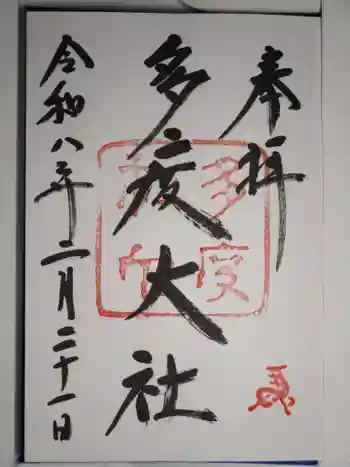 奉拝
多度大社
令和八年二月二十一日